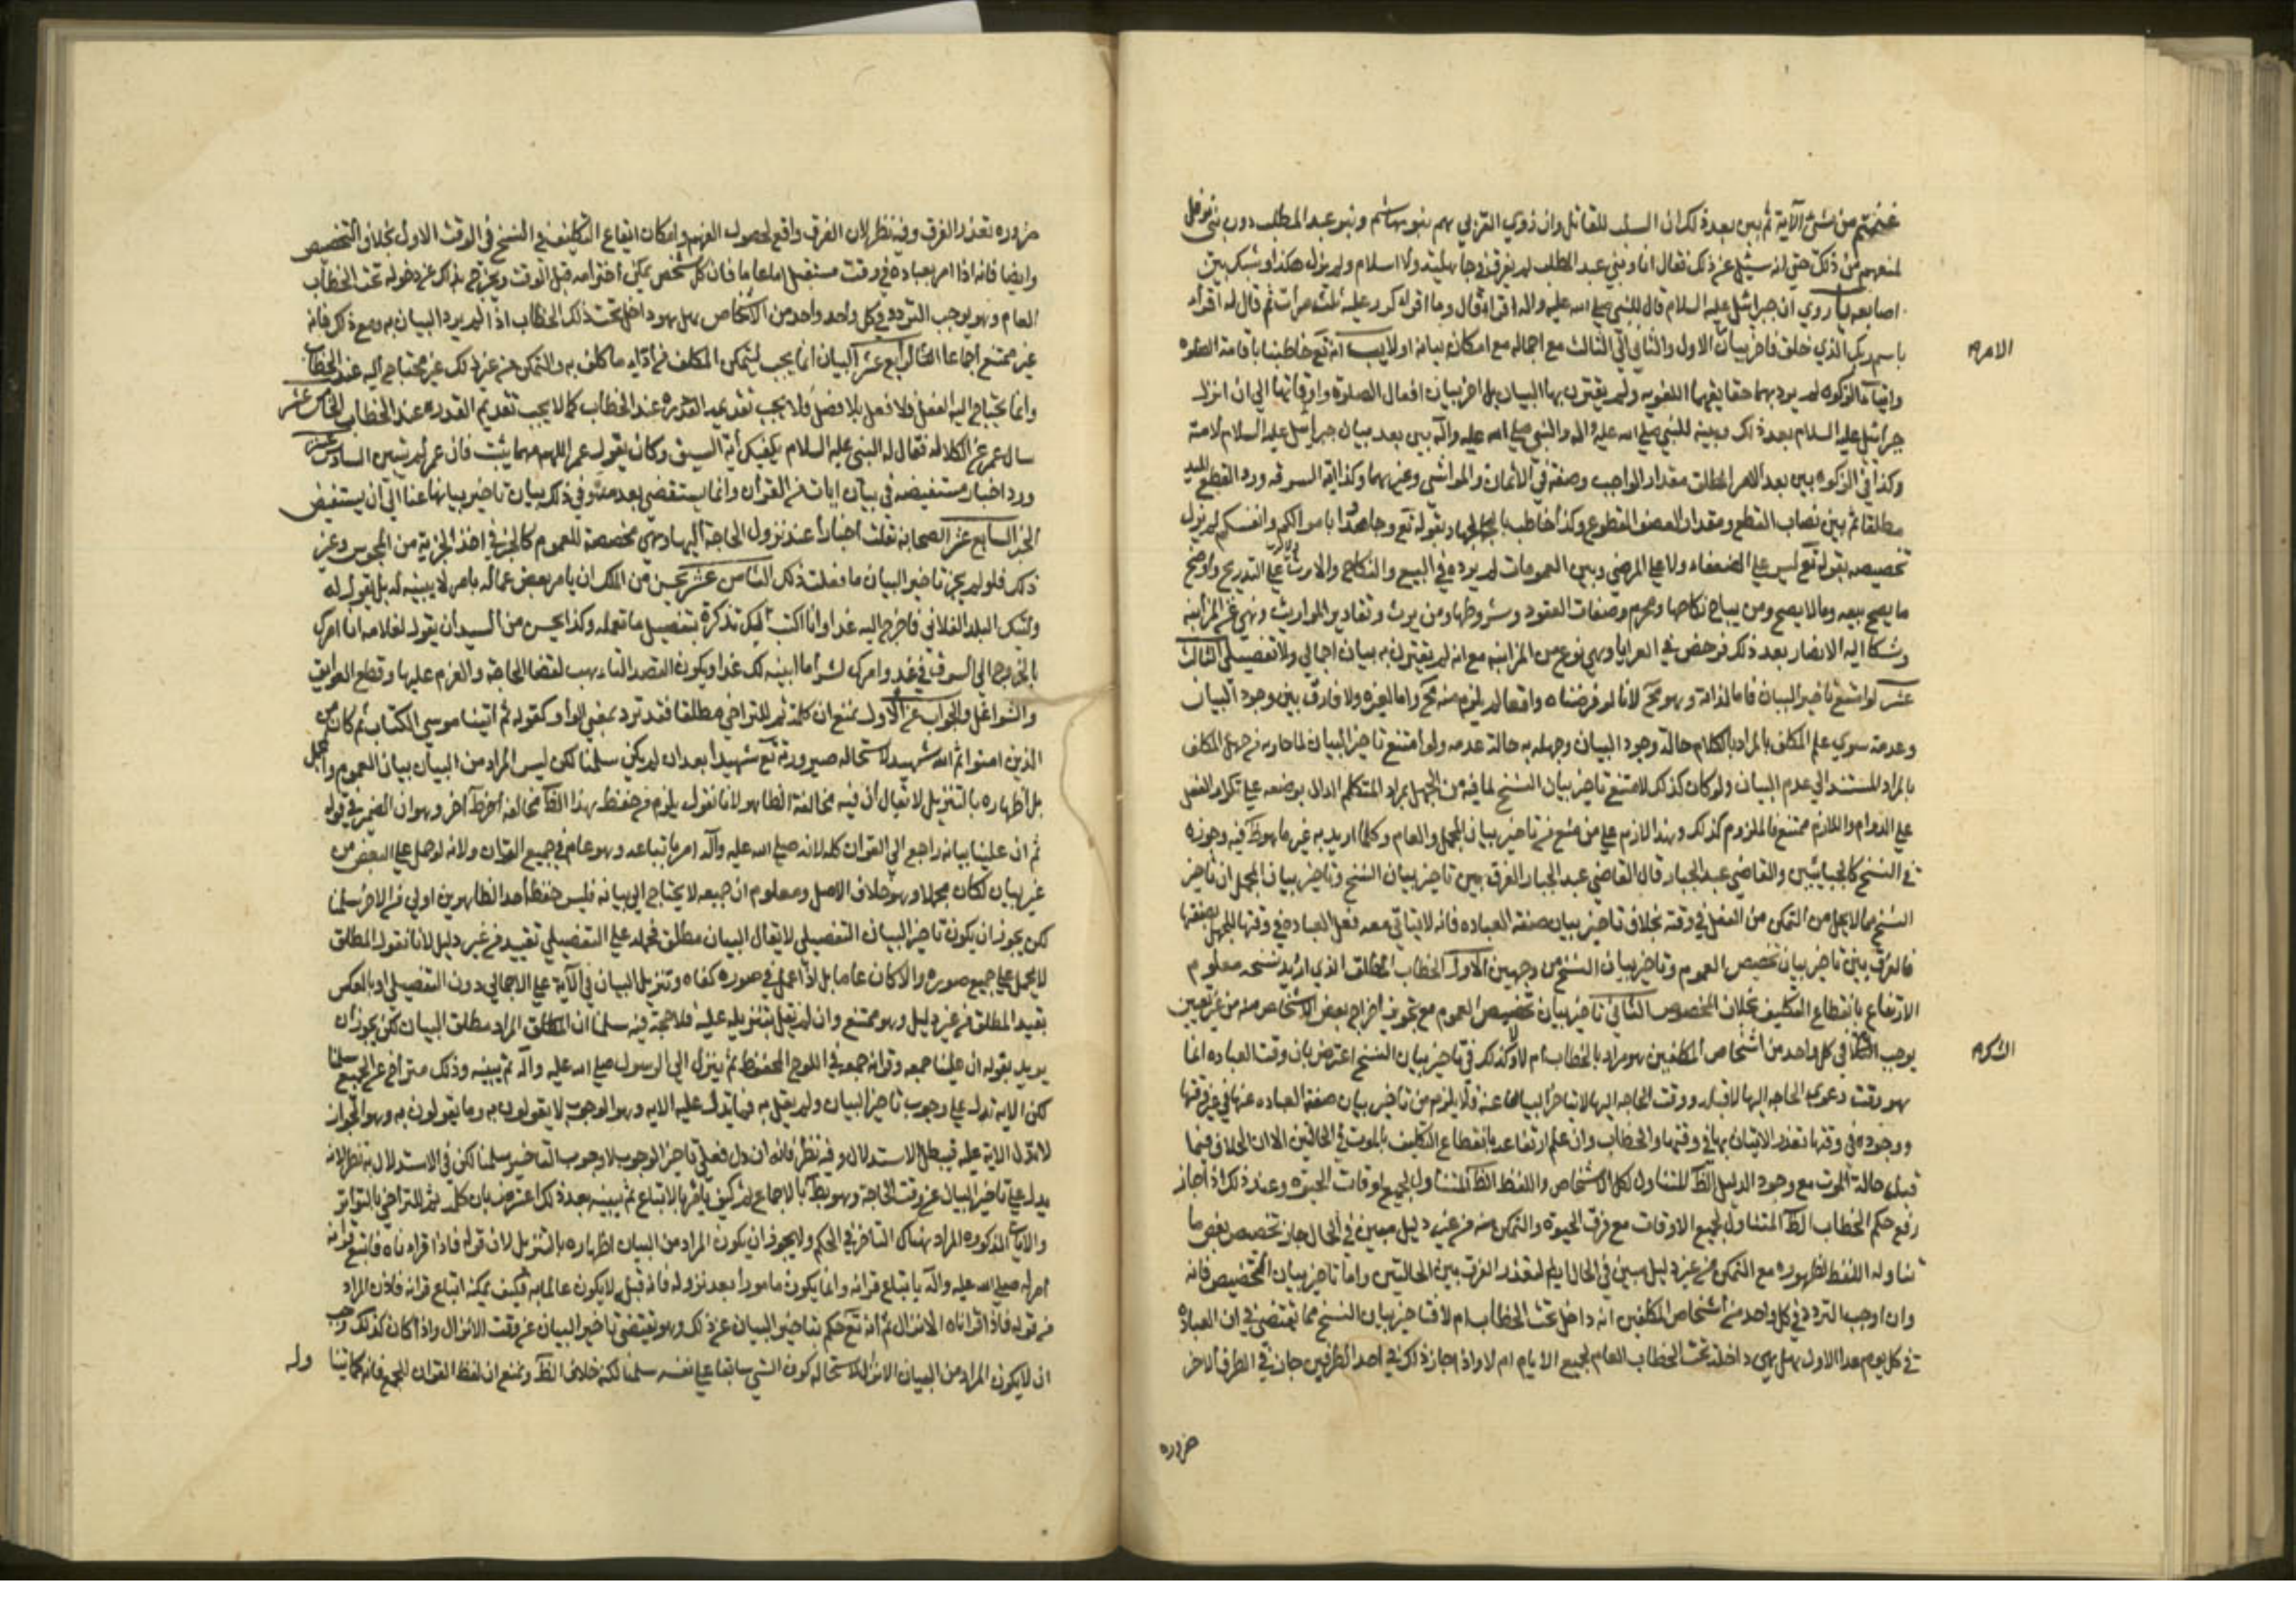 غنمتم من شئ الآية ثم بين بعد ذلك ان السلب للقاتل وان ذوي القربي بهم بنو هاشم وبنو عبد المطلب دون بني نوفل
لمنعهم من ذلك حتى انه سئل عن ذلك فقال انا وبني عبد المطلب لم نفرق في جاهلية ولا اسلام ولم نزل هكذا وشبك بين
اصابعه يا روي ان جبرائيل عليه السلام قال للنبي صلى الله عليه واله اقرا قال وما اقرا كرر عليه ثلث مرات ثم قال له اقرأ
باسم ربك الذي خلق فاخر بيان الاول والثاني الى الثالث مع اجماله مع امكان بيانه اولا يب انه تع خاطبنا باقامة الصلوة
الامر
وايتاء الزكوة لم يرد بهما حقايقهما اللغويه ولم يقترن بها البيان بل اخر بيان افعال الصلوة واوقاتها الى ان انزل
جبرائيل عليه السلام بعد ذلك وبينه للنبي صلى الله عليه واله والنبي صلى الله عليه واله بين بعد بيان جبرائيل عليه السلام لامته
وكذا في الزكوة بين بعد الامر المطلق مقدار الواجب وصفته في الاثمان والمواشي وغيرهما وكذا اية السرقه ورد القطع لليد
مطلقا ثم بين نصاب القطع ومقدار العضو المقطوع وكذا خاطب بالجهاد بقوله تع وجاهدوا باموالكم وانفسكم ثم نزل
تخصيصه بقوله تع ليس على الضعفاء ولا على المرضى وبين العمومات لم يرده في البيع والنكاح والارث على التدريج واوضح
ما يصح بيعه وما لا يصح ومن يباح نكاحها ومحرم وصفات العقود وشروطها ومن يرث وتقادير المواريث ونهى عن المزابنه
وشكا اليه الانصار بعد ذلك فرخص في العرايا وهي نوع من المزابنه مع انه لم يقترن به بيان اجمالي ولا تفصيلي الثالث
عشر لو امتنع تاخير البيان فاما لذاته وهو مح لانا لو فرضناه واقعا لم يلزم منه مح واما لغيره ولا فارق بين وجود البيان
وعدمه سوى علم المكلف بالمراد بالكلام حالة وجود البيان وجهله به حالة عدمه ولو امتنع تاخير البيان لما قارنه من جهل المكلف
بالمراد المستند الى عدم البيان ولو كان كذلك لامتنع تاخير بيان النسخ لما فيه من الجهل بمراد المتكلم الدال بوضعه على تكرار الفعل
على الدوام واللازم ممتنع فالملزوم كذلك وهذا لازم على من منع من تاخير بيان المجمل والعام وكلما اريد به غير ما هو ظ فيه وجوزه
في النسخ كالجبائيين والقاضي عبد الجبار قال القاضي عبد الجبار الفرق بين تاخير بيان النسخ وتاخير بيان المجمل ان تاخير
النسخ مما لا يخل من التمكن من الفعل في وقته بخلاف تاخير بيان صفة العباده فانه لا يتاتي معه فعل العباده في وقتها للجهل بصفتها
فالفرق بين تاخير بيان تخصيص العموم وتاخير بيان النسخ من وجهين الاول الخطاب المطلق الذي اريد نسخه معلوم
الارتفاع بانقطاع التكليف بخلاف المخصوص الثاني تاخير بيان تخصيص العموم مع تجويز اخراج بعض الاشخاص منه من غير تعيين
يوجب الشك في كل واحد من اشخاص المكلفين هو مراد بالخطاب ام لا وكذلك في تاخير بيان النسخ اعترض بان وقت العباده انما
الشك
هو وقت دعوى الحاجه اليها لا قبله ووقت الحاجه اليها لا يتاخر البيان عنه ولا يلزم من تاخير بيان صفة العباده عنها في غير وقتها
ووجوده في وقتها تعذر الاتيان بها في وقتها والخطاب وان علم ارتفاعه بانقطاع التكليف بالموت في الحالتين الا ان الخلاف فيما
قبل حالة الموت مع وجود الدليل الظ المتناول لكل الاشخاص واللفظ الظ المتناول لجميع اوقات الحيوه وعند ذلك اذا جاز
رفع حكم الخطاب الظ المتناول لجميع الاوقات مع فرض الحيوه والتمكن منه من غير دليل مبين في الحال جاز تخصيص بعض ما
تناوله اللفظ بظهوره مع التمكن من غير دليل مبين في الحال ايضا لتعذر الفرق بين الحالتين واما تاخير بيان التخصيص فانه
وان اوجب التردد في كل واحد من اشخاص المكلفين انه داخل تحت الخطاب ام لا فتاخير بيان النسخ مما تقتضي في ان العباده
في كل يوم عدا الاول هل هي داخلة تحت الخطاب العام لجميع الايام ام لا واذا جاز ذلك في احد الطرفين جاز في الطرف الاخر
ضروره
ضروره تعذر الفرق وفيه نظر لان الفرق واقع لحصول الفهم وامكان ايقاع التكليف في النسخ في الوقت الاول بخلاف التخصيص
وايضا فانه اذا امر بعباده في وقت مستقبل امرا عاما فان كل شخص يمكن اخترامه قبل الوقت ويخرج بذلك عن دخوله تحت الخطاب
العام وهو يوجب التردد في كل واحد واحد من الاشخاص هل هو داخل تحت ذلك الخطاب اذا لم يرد البيان به ومع ذلك فانه
غير ممتنع اجماعا الرابع عشر البيان انما يجب لتمكن المكلف من اداء ما كلف به والتمكن من غير ذلك غير محتاج اليه عند الخطاب
وانما يحتاج اليه الفعل ولا فعل بلا فصل ولا يجب تقديم القدره عند الخطاب كما لا يجب تقديم القدره عند الخطاب الخامس عشر
سال عمر عن الكلاله فقال له النبي عليه السلام يكفيك آية السيف وكان يقول عمر اللهم مهما بينت فان عمر لم يتبين السادس عشر
ورد اخبار مستفيضه في بيان ايات من القران وانما يستقضي بعد مده وفي ذلك بيان تاخير بيانها عنا الى ان يستفيض
الخبر السابع عشر الصحابه نقلت اخبارا عند نزول الحاجة اليها وهي مخصصة للعموم كالخبر في اخذ الجزية من المجوس وغير
ذلك فلو لم يجز تاخير البيان ما فعلت ذلك الثامن عشر يحسن من الملك ان يامر بعض عماله بامر لا يبينه له بل يقول له
وليتك البلد الفلاني فاخرج اليه غدا وانا اكتب اليك تذكرة بتفصيل ما تعمله وكذا يحسن من السيد ان يقول لغلامه انا امرك
بالخروج الى السوق في غد وامرك لشرا ما ابينه لك غدا ويكون القصد التاهب لقضا الحاجة والعزم عليها وقطع العوايق
والشواغل والجواب عن الاول نمنع ان كلمة ثم للتراخي مطلقا فقد ترد بمعنى الواو كقوله ثم اتينا موسى الكتاب ثم كان من
الذين امنوا ثم الله شهيد لاستحالة صيرورته تع شهيدا بعد ان لم يكن سلمنا لكن ليس المراد من البيان بيان العموم والمجمل
بل اظهاره بالتنزيل لا يقال ان فيه مخالفة الظاهر لانا نقول يلزم من حفظ هذا الظ مخالفة اخر ظ اخر وهو ان الضمير في قوله
ثم ان علينا بيانه راجع الى القران كله لانه صلى الله عليه واله امر باتباعه وهو عام في جميع القران ولانه لو حمل على البعض من
غير بيان لكان مجملا وهو خلاف الاصل ومعلوم ان جميعه لا يحتاج الى بيانه فليس حفظ احد الظاهرين اولى من الاخر سلمنا
لكن يجوز ان يكون تاخير البيان التفصيلي لا يقال البيان مطلق فحمله على التفصيلي تقييد من غير دليل لانا نقول المطلق
لا يحمل على جميع صوره والا كان عاما بل اذا عمل في صوره كفاه وتنزيل البيان في الآية على الاجمالي دون التفصيلي او بالعكس
يقيد المطلق من غير دليل وهو ممتنع وان لم نقل بتنزيله عليه فلا حجة فيه سلمنا ان المطلق المراد مطلق البيان لكن يجوز ان
يريد بقوله ان علينا جمعه وقرانه جمعه في اللوح المحفوظ ثم ينزل الى الرسول صلى الله عليه واله ثم يبينه وذلك متراخ عن الجمع سلمنا
لكن الاية تدل على وجوب تاخير البيان ولم يقل به فما تدل عليه الاية وهو الوجوب لا يقولون به وما يقولون به وهو الجواز
لا تدل الاية عليه فيبطل الاستدلال وفيه نظر فانه ان دل فعلى تاخير الوجوب لا وجوب التاخير سلمنا لكن في الاستدلال به نظر لانه
يدل على تاخير البيان عن وقت الحاجة وهو بط بالاجماع لم كيف يامر بالاتباع ثم يبينه بعد ذلك اعترض بان كلمة ثم للتراخي بالتواتر
والآيات المذكوره المراد هناك التاخر في الحكم ولا يجوز ان يكون المراد من البيان اظهاره بالتنزيل لان قوله فاذا قراناه فاتبع قرانه
امر له صلى الله عليه واله باتباع قرانه وانما يكون مامورا بعد نزوله فانه قبله لا يكون عالما به فكيف يمكنه اتباع قرانه فاذن المراد
من قوله فاذا قراناه الانزال ثم انه تع حكم بتاخير البيان عن ذلك وهو يقتضي تاخير البيان عن وقت الانزال واذا كان كذلك وجب
ان لا يكون المراد من البيان الانزال لاستحالة كون الشئ سابقا على نفسه سلمنا لكنه خلاف الظ ونمنع ان لفظ القران للجمع فانه كما يتنا وله